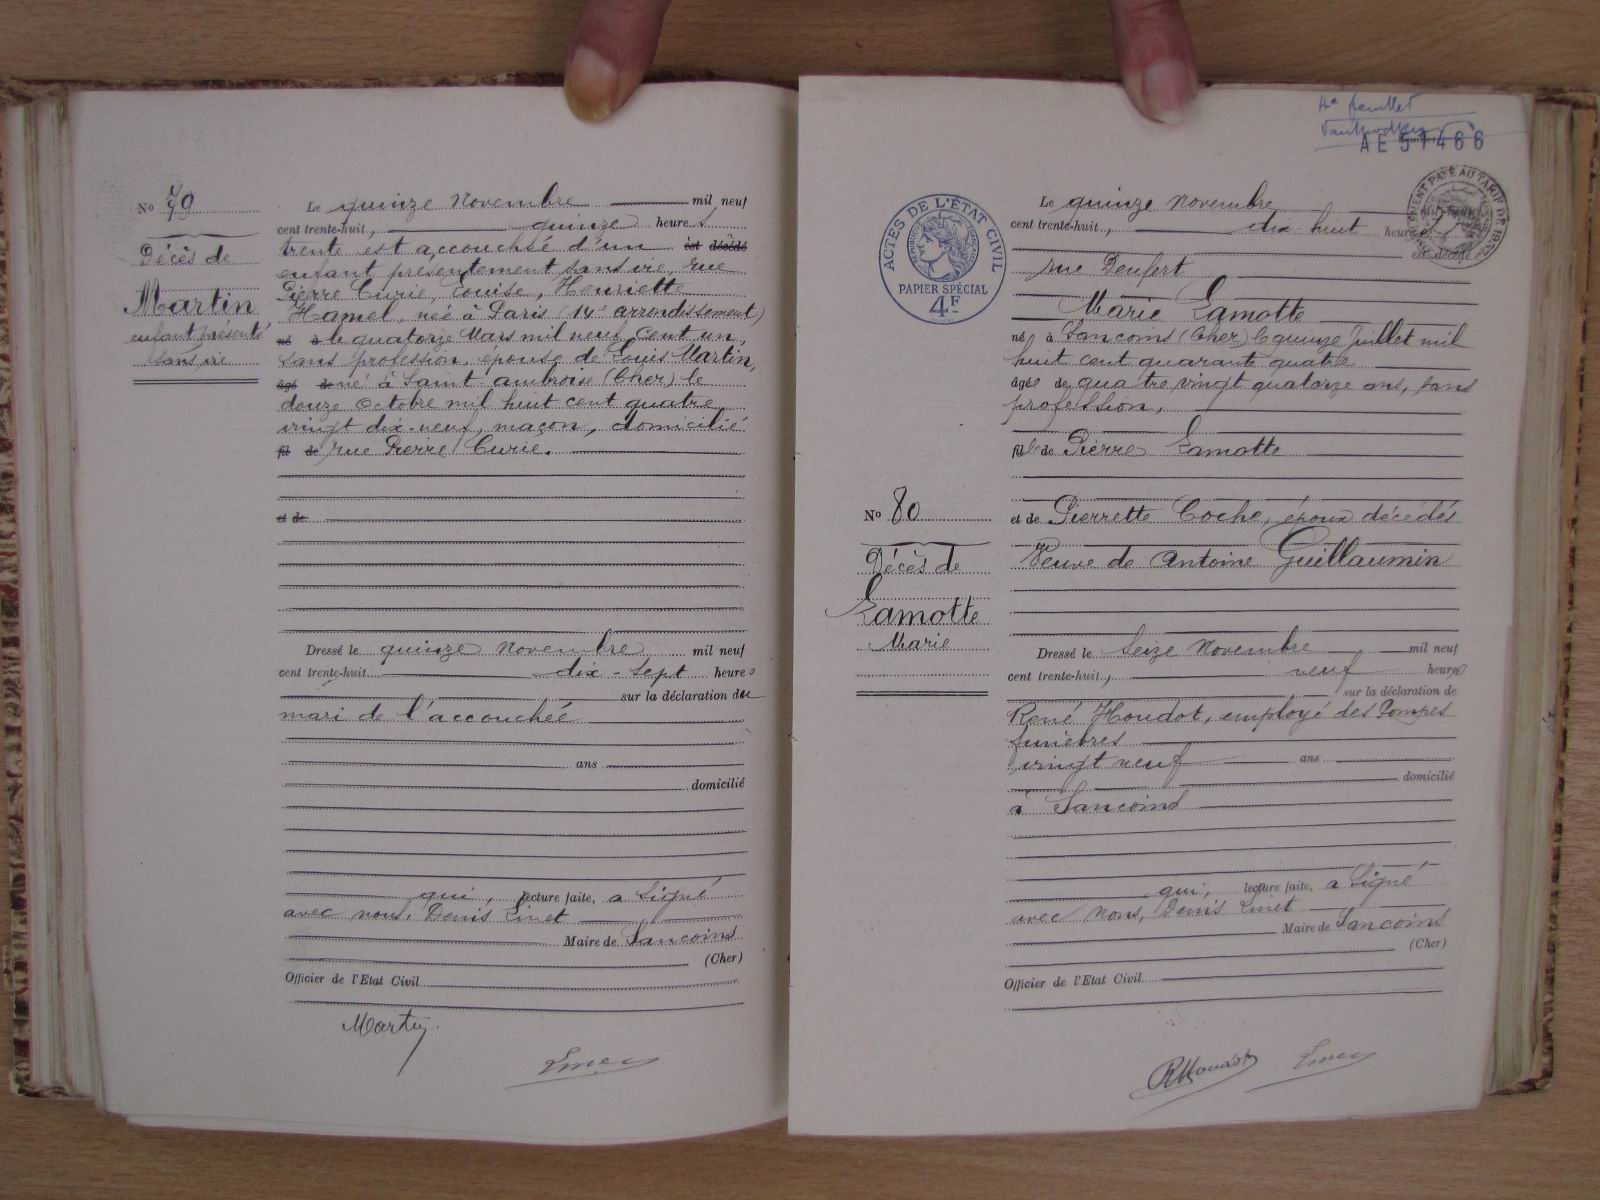 No 79
Décès de
Martin
enfant présenté
sans vie
Le quinze Novembre mil neuf
cent trente-huit, quinze heures
trente est accouchée d'un est décédé
enfant présentement sans vie, rue
Pierre Curie, Louise, Henriette
Hamel, née à Paris (14e arrondissement)
né à le quatorze Mars mil neuf cent un,
sans profession, épouse de Louis Martin,
âgé de né à Saint Amboise (Cher) le
douze Octobre mil huit cent quatre
vingt dix-neuf, maçon, domicilié
fil de rue Pierre Curie.
et de
Dressé le quinze Novembre mil neuf
cent trente-huit dix-sept heures
sur la déclaration du
mari de l'accouchée
ans
domicilié
qui, lecture faite, a signé
avec nous, Denis Linet
Maire de Sancoins
(Cher)
Officier de l'Etat Civil
Martin
Linet
4e feuillet
AE 51466
ACTES DE L'ÉTAT CIVIL
PAPIER SPÉCIAL
4F
No 80
Décès de
Lamotte
Marie
Le quinze Novembre
cent trente-huit, dix huit heures
est décédé
rue Denfert
Marie Lamotte
né à Sancoins (Cher) le quinze Juillet mil
huit cent quarante quatre
âgée de quatre vingt quatorze ans, sans
profession,
fille de Pierre Lamotte
et de Pierrette Coche, époux décédés
Veuve de Antoine Guillaumin
Dressé le Seize Novembre mil neuf
cent trente-huit, neuf heures
sur la déclaration de
René Houdot, employé des Pompes
funèbres
vingt neuf ans
domicilié
à Sancoins
qui, lecture faite, a signé
avec nous, Denis Linet
Maire de Sancoins
(Cher)
Officier de l'Etat Civil
RHoudot
Linet